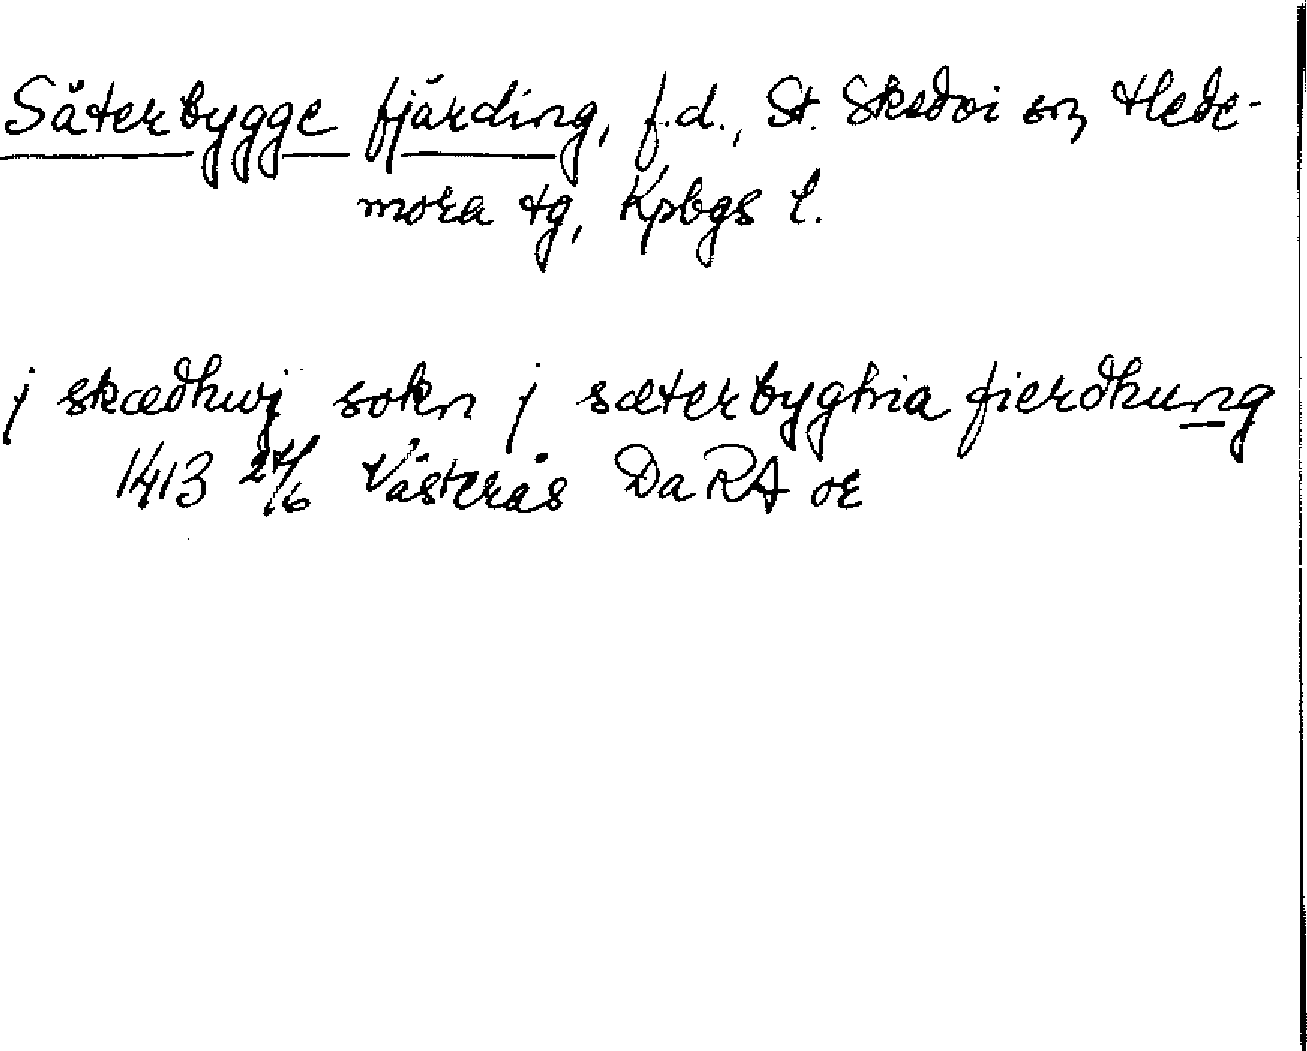 Säterbygge fjärding, f.d., St. Skedvi sn, Hede-
mora tg, Kpbgs l.
j skædhwj sokn j sæterbyghia fierdhung
1413 24/6 Västerås Da RA or